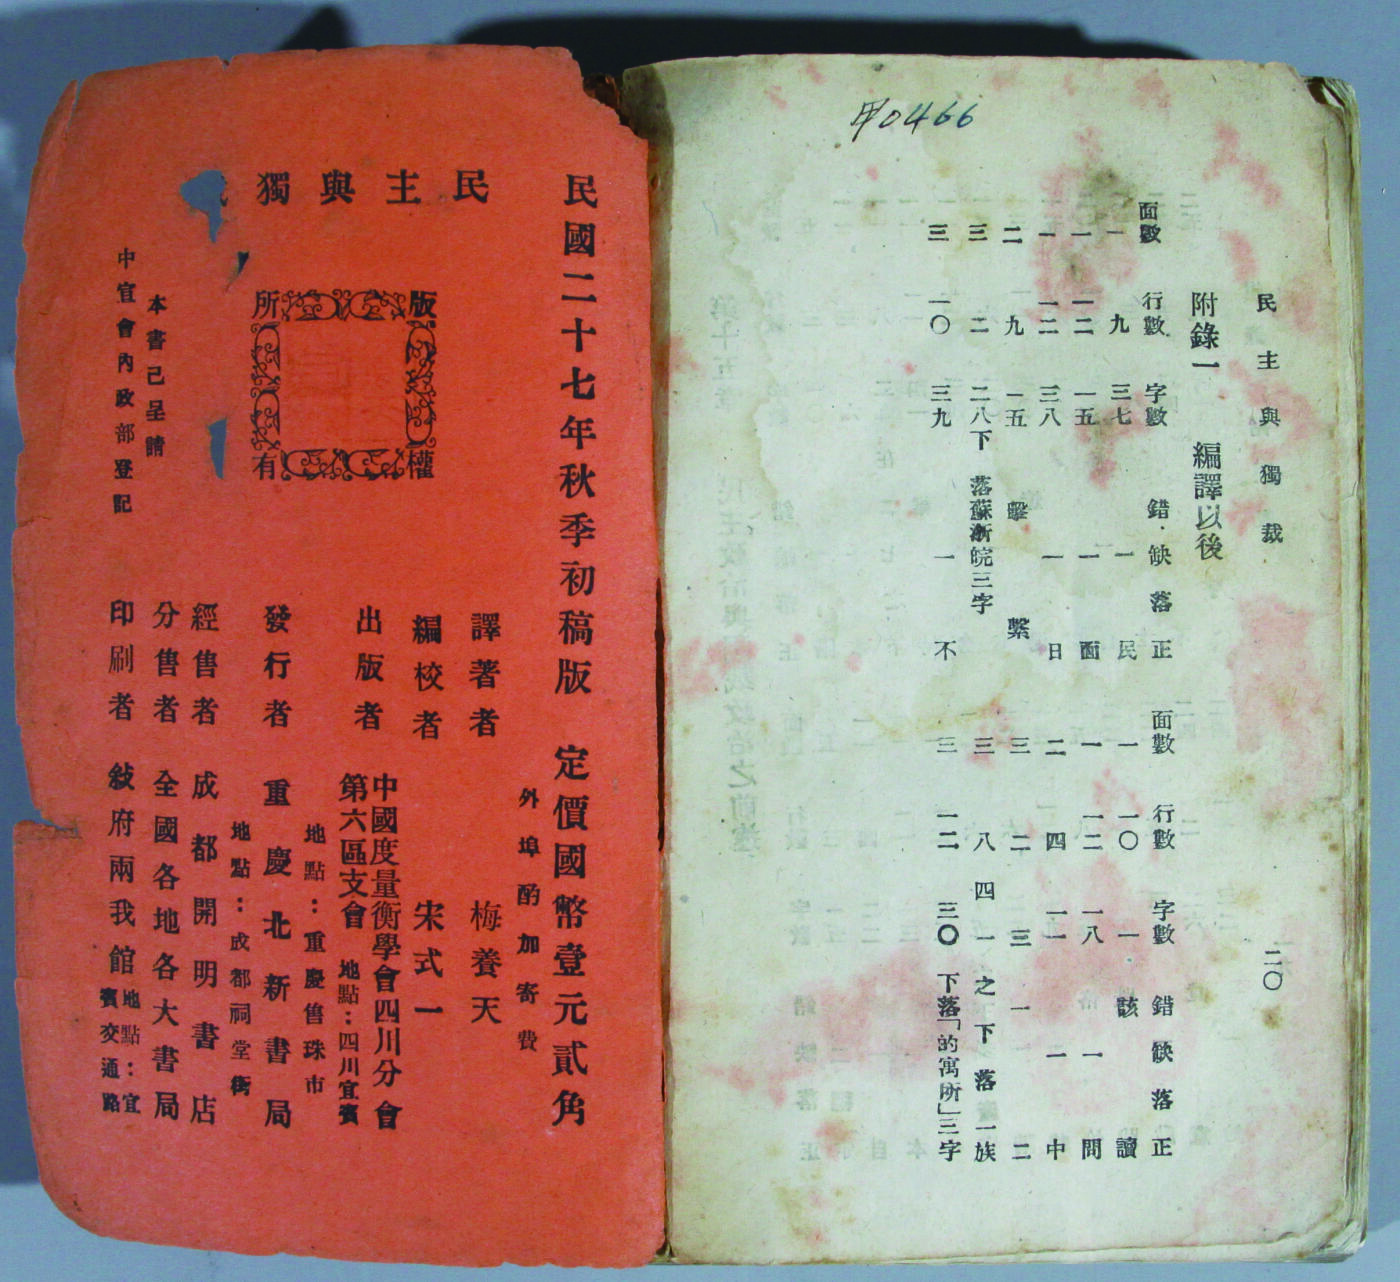 甲0466
民主與獨裁
二〇
附錄一 編譯以後
面數 行數 字數 錯·缺 落 正 面數 行數 字數 錯 缺 落 正
一 九 三七 一 民 一 一〇 一 該 讀
一 一二 一五 一 面 一 一二 一八 一 問
一 一二 三八 一 日 二 四 一一 一 中
二 九 一五 擊 繫 三 二 三 一 二
三 二 二八下 落蘇浙皖三字 三 八 四一之下落 一族
三 一〇 三九 一 不 三 一二 三〇 下落「的寓所」三字
民主與獨
民國二十七年秋季初稿版 定價國幣壹元貳角
外埠酌加寄費
譯著者 梅養天
編校者 宋式一
出版者 中國度量衡學會四川分會
第六區支會 地點:四川宜賓
地點:重慶售珠市
發行者 重慶北新書局
地點:成都祠堂街
經售者 成都開明書店
分售者 全國各地各大書局
印刷者 敍府兩我館 地點:宜
賓交通路
版權所有
本書已呈請
中宣會內政部登記